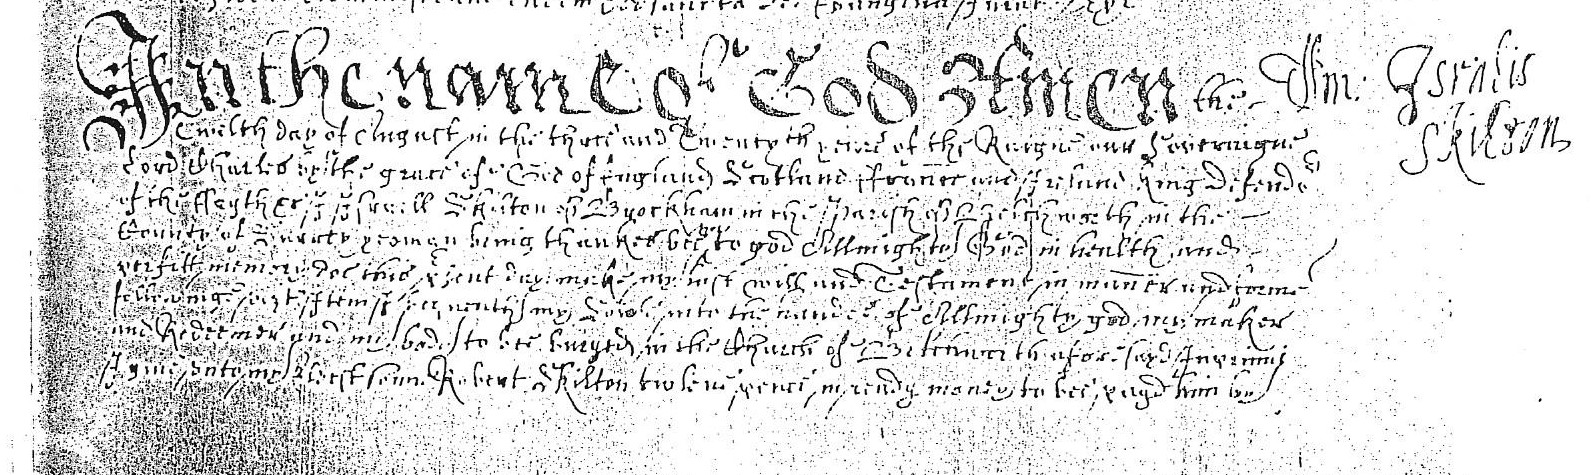 In the name of God Amen the
Twelth day of August in the three and Twentyth yeare of the Raigne our Soveraigne
Lord Charles by the grace of God of England Scotland ffrance and Ireland King Defender
of the ffayth I Israell Skilton of Brockham in the Parish of in the
County of Surrey yeoman being thankes bee to god Allmighty God in health and
perfitt memory doe this day make my last will and Testament in manner and forme
followinge my Sowle into the handes of Allmighty god my maker
and Redeemer and my body to bee buryed in the Church of aforesayd Inprimis
I give unto my Eldest sonne Robert Skilton twelve pence in ready money to bee payd him by
Tm: Israelis
Skilton